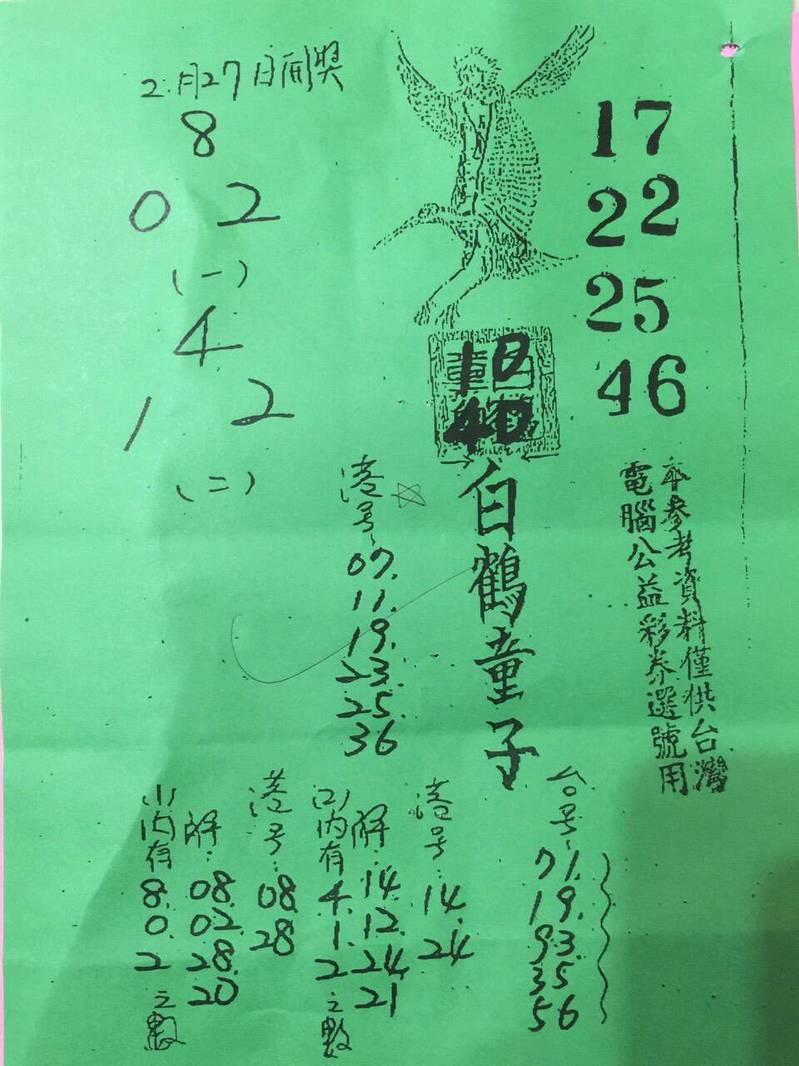 2月27日開獎
8
0 2
(一)
4
1 2
(二)
17
22
25
46
18
40
白鶴童子
本參考資料僅供台灣
電腦公益彩券選號用
港号:
07.
11.
19.
23.
25.
36
台号:
71.
19.
93.
35
56
港号:
14.
24
(2)內有
4.
1.
2
之數
解:
14.
12.
24.
21
港号:
08.
28
(1)內有
8.
0.
2
之數
解:
08.
02.
28.
20